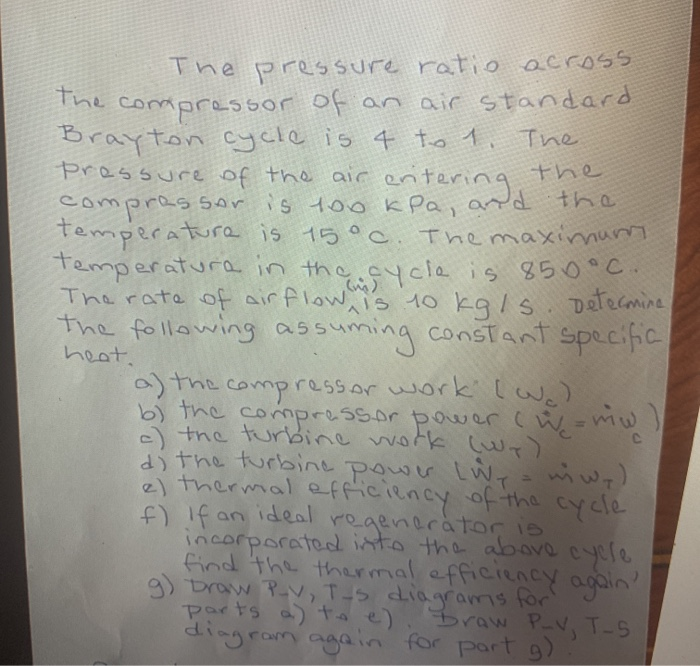 The pressure ratio across
the compressor of an air standard
Brayton cycle is 4 to 1. The
pressure of the air entering the
compressor is 100 kPa, and the
temperature is 15°C. The maximum
temperature in the cycle is 850°C.
The rate of airflow (ṁ) is 10 kg/s. Determine
the following assuming constant specific
heat.
a) the compressor work (wc)
b) the compressor power (Ẇc = ṁwc)
c) the turbine work (wT)
d) the turbine power (ẆT = ṁwT)
e) thermal efficiency of the cycle
f) If an ideal regenerator is
incorporated into the above cycle
find the thermal efficiency again
g) Draw P-V, T-S diagrams for
parts a) to e). Draw P-V, T-S
diagram again for part g).